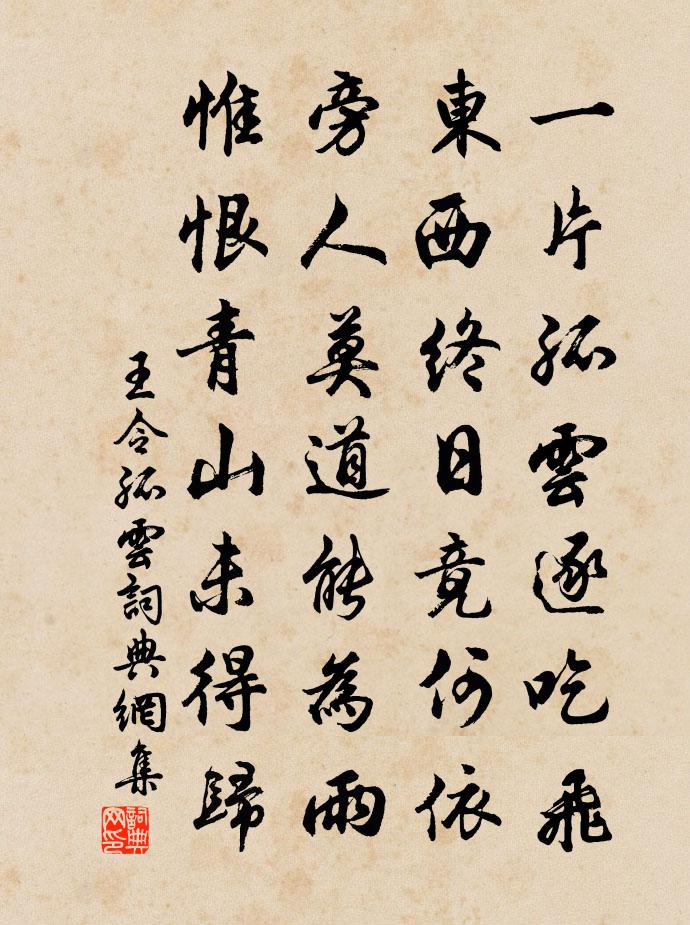 一片孤雲逐吃飛
東西終日竟何依
旁人莫道能為雨
惟恨青山未得歸
王令孤雲詞典網集
詞典网印